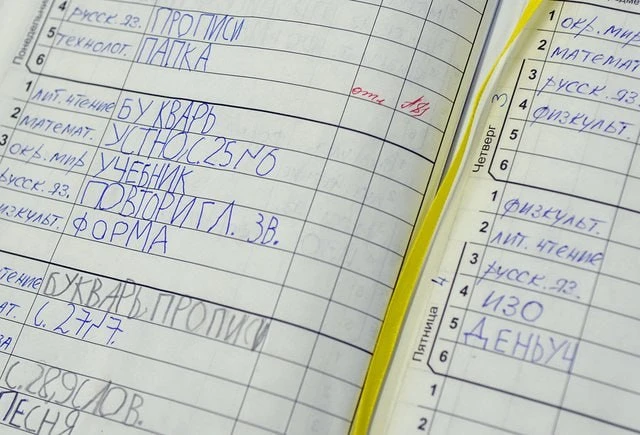 4 русск. яз. ПРОПИСИ
5 технолог. ПАПКА
6
Понедельник
отл
1 лит. чтение БУКВАРЬ
2 математ. УСТНО, С.25 №6
3 окр. мир УЧЕБНИК
русск. яз. ПОВТОРИ ГЛ. ЗВ.
изкульт. ФОРМА
тение БУКВАРЬ, ПРОПИСИ
ат. С. 27 №7.
С. 28, 9 СЛОВ.
ПЕСНЯ
1 окр. мир
2 математ
3 русск. яз.
4 физкульт.
5
6
Четверг 3
1 физкульт.
2 лит. чтение
3 русск. яз.
4 ИЗО
5 ДЕНЬ УЧ
6
Пятница 4
1
2